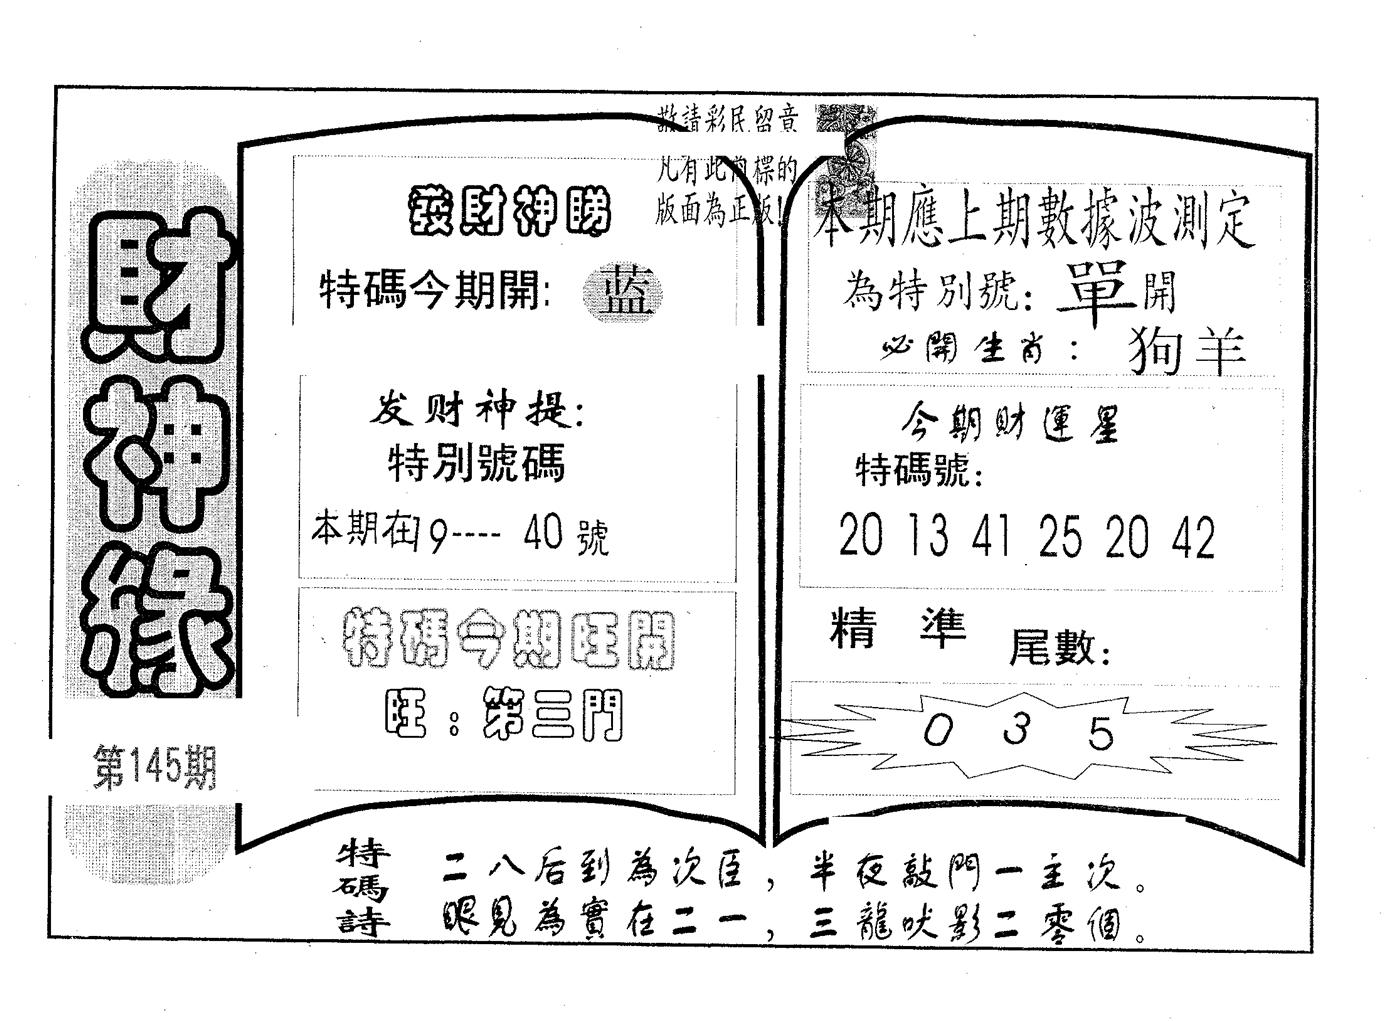 財神緣
第145期
敬請彩民留意
凡有此商標的
版面為正版!
發財神睇
特碼今期開: 蓝
发财神提:
特別號碼
本期在19---- 40號
特碼今期旺開
旺:第三門
本期應上期數據波測定
為特別號: 單開
必開生肖: 狗羊
今期財運星
特碼號:
20 13 41 25 20 42
精準 尾數:
0 3 5
特碼詩
二八后到為次臣,半夜敲門一主次。
眼見為實在二一,三龍吠影二零個。